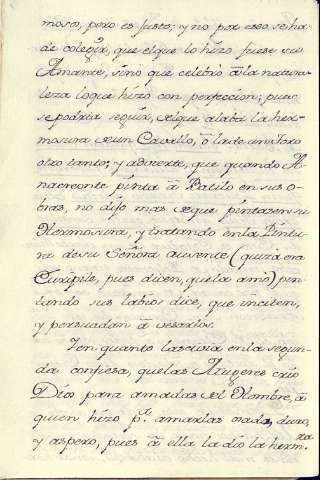 moso, pero es justo; y no por esso se ha
de colegir, que el que lo hizo fuese su
Amante, sino que celebró a la natura-
leza lo que hizo con perfeccion; pues
se podria seguir, se el que alaba la her-
mosura de un Cavallo, ò la de un Toro
otro tanto; y advierte, que quando A-
nacreonte pinta à Batilo en sus o-
bras, no dijo mas de que pintasen su
Hermosura, y tratando en la Pintu-
ra de su Señora Ausente (quizà era
Eurípile, pues dicen, que la amó) pin-
tando sus labios dice, que inciten,
y persuadan à vesarlos.
Y en quanto lascivia en la segun-
da confiesa, que las Mugeres crió
Dios para amadas del Hombre, à
quien hizo pª. amarlas osado, duro,
y aspero, pues à ella la dió la herm.ra